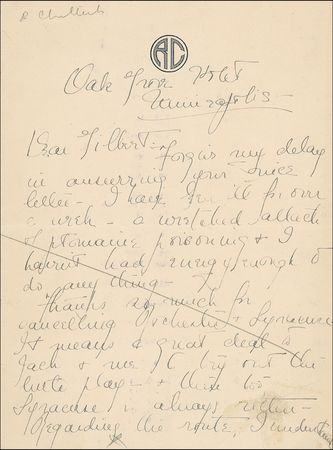 R Chatterton
RC
Oak Grove Hotel
Minneapolis -
Dear Gilbert - Forgive my delay
in answering your nice
letter - I have been ill for over
a week - a wretched attack
of ptomaine poisoning & I
haven't had energy enough to
do anything -
Thanks so much for
cancelling Rochester & Syracuse
It means a great deal to
Jack & me to try out the
little play & then too
Syracuse is always rotten -
Regarding the route, I understand